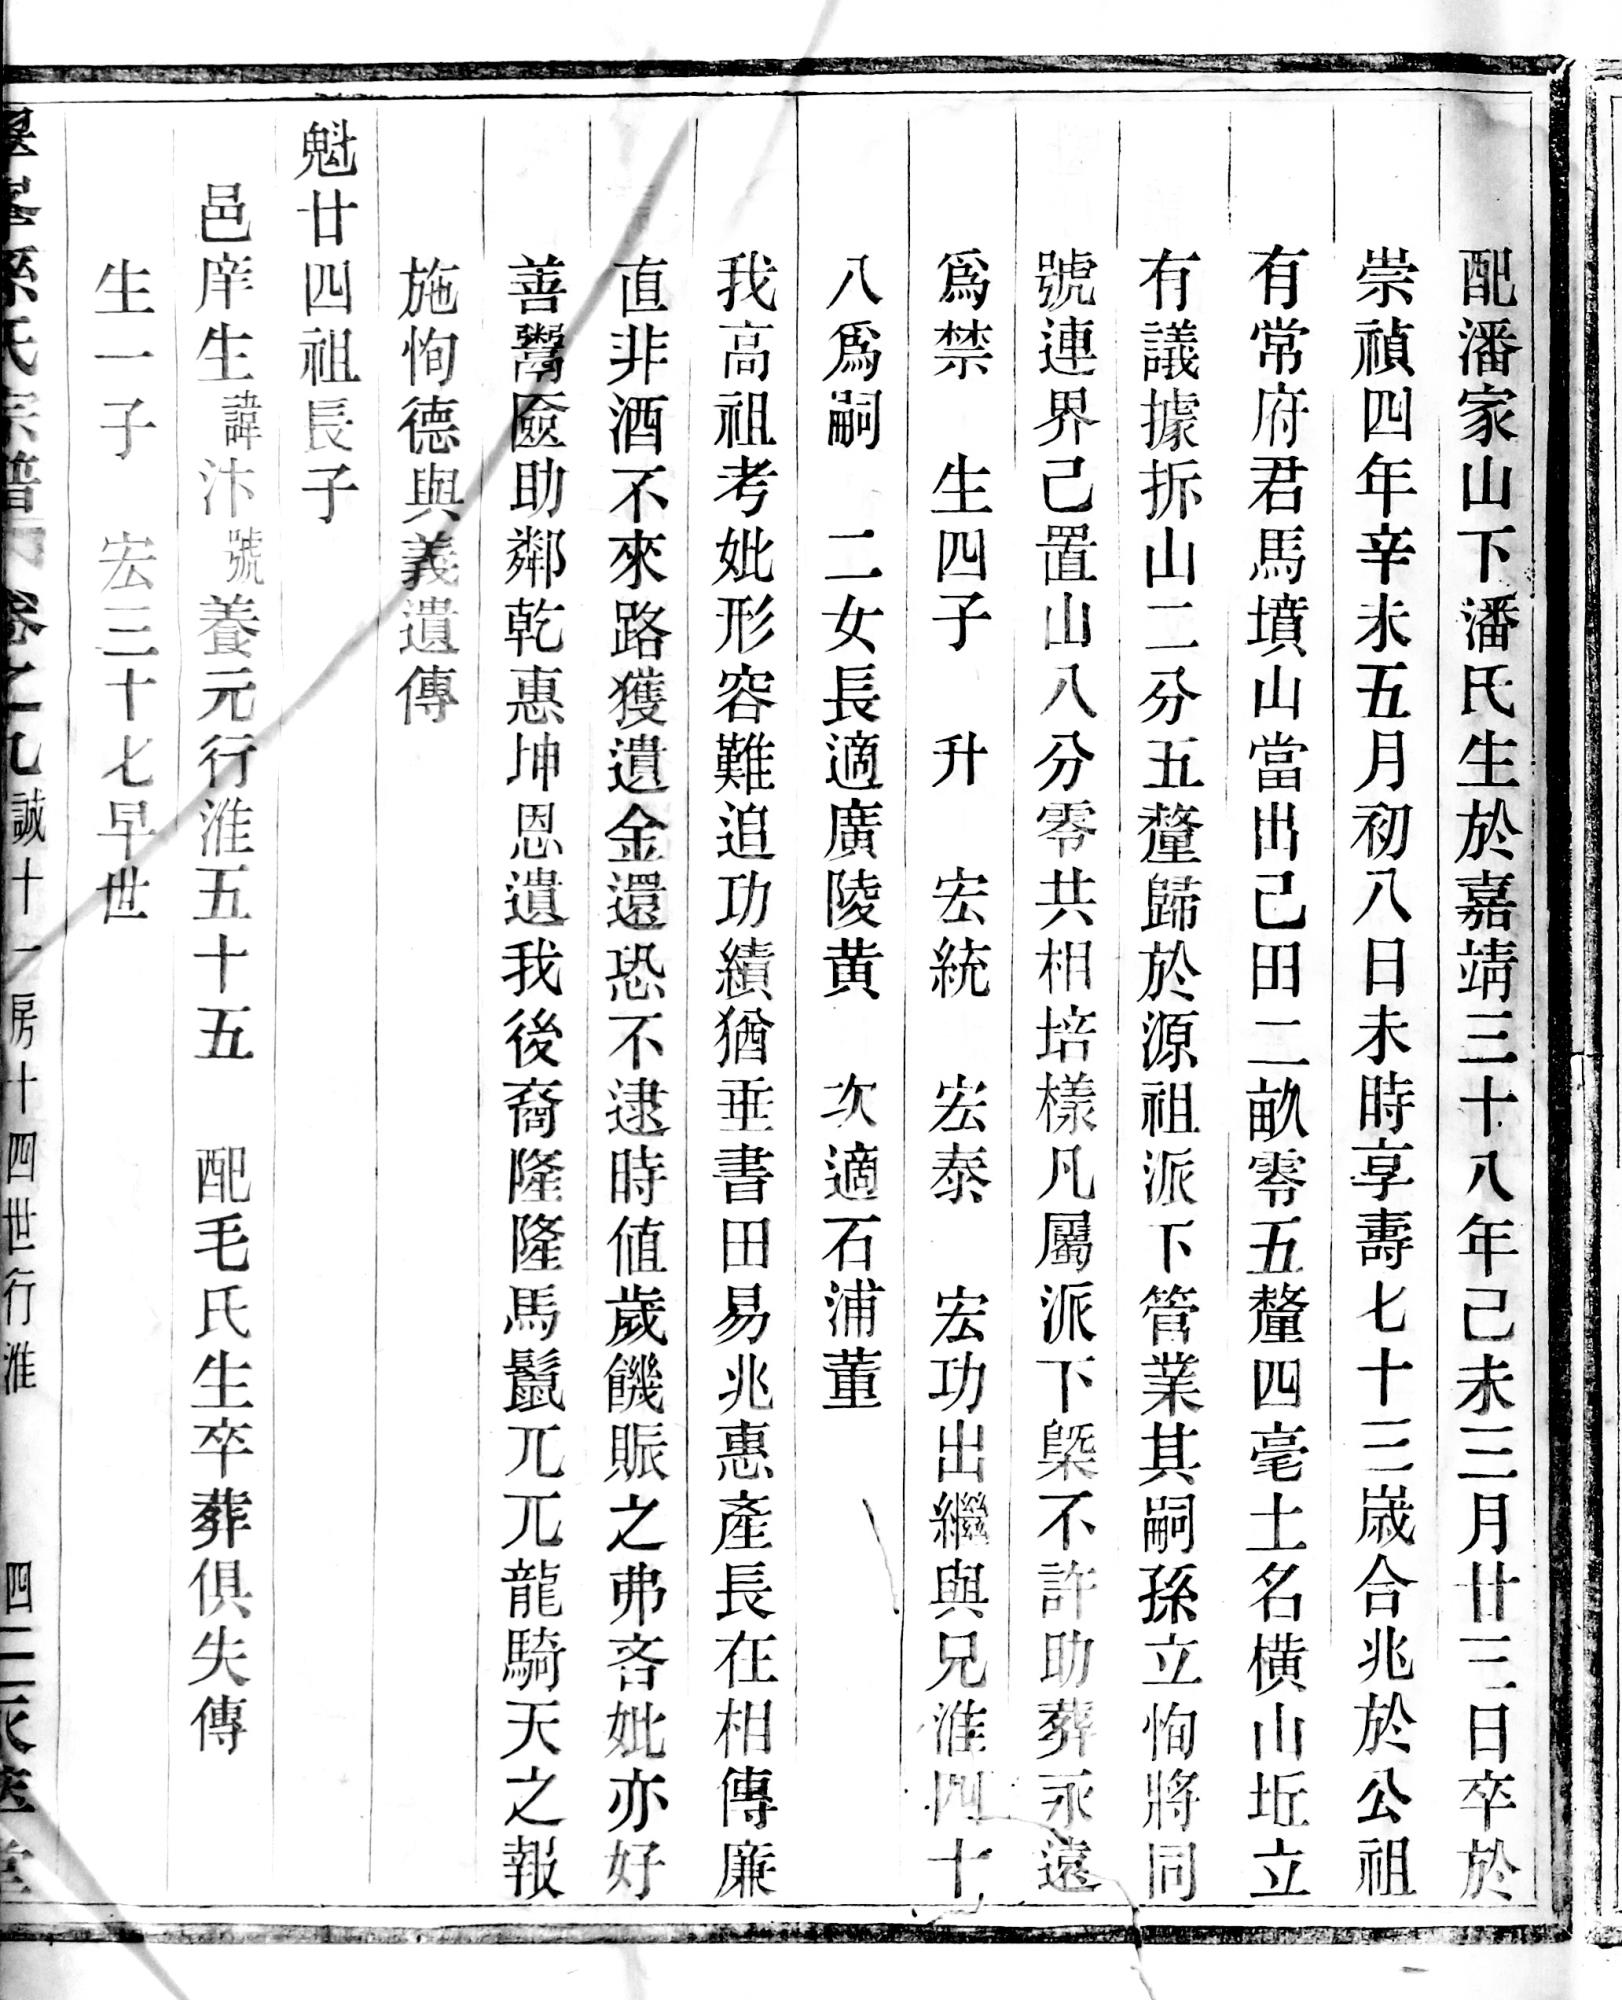 配潘家山下潘氏生於嘉靖三十八年己未三月廿三日卒於
崇禎四年辛未五月初八日未時享壽七十三歲合兆於公祖
有常府君馬墳山當出己田二畝零五釐四毫土名橫山坵立
有議據拆山二分五釐歸於源祖派下管業其嗣孫立恂將同
號連界己置山八分零共相培樣凡屬派下槩不許助葬永遠
爲禁　生四子　升　宏統　宏泰　宏功出繼與兄淮四十
八爲嗣　二女長適廣陵黄　次適石浦董
我高祖考妣形容難追功績猶垂書田易兆惠產長在相傳廉
直非酒不來路獲遺金還恐不逮時值歲饑賑之弗吝妣亦好
善鬻匳助鄰乾惠坤恩遺我後裔隆隆馬鬣兀兀龍騎天之報
施恂德與義遺傳
魁廿四祖長子
邑庠生諱汴號養元行淮五十五　配毛氏生卒葬俱失傳
生一子　宏三十七早世
孫氏宗譜　卷之九　誠十一房十四世行淮　四二　堂